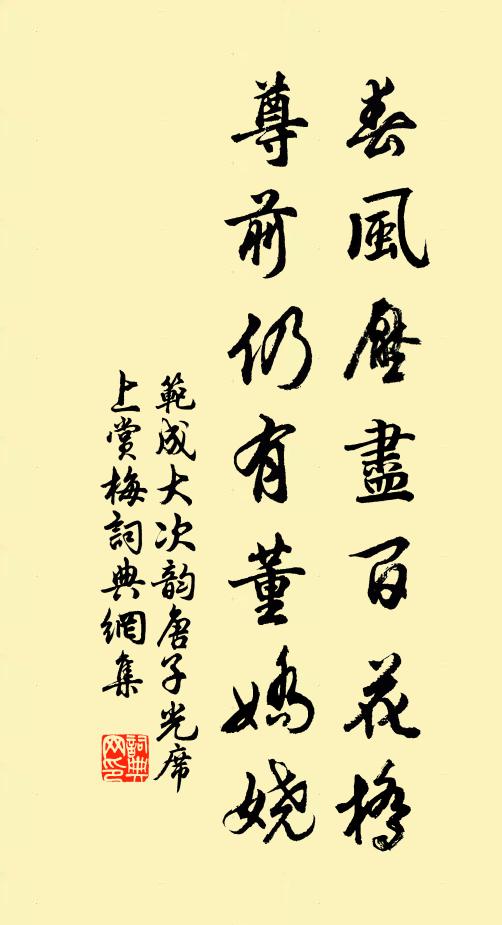 春風壓盡百花橋
尊前仍有董嬌嬈
範成大次韵唐子光席
上賞梅詞典網集
詞典
网印